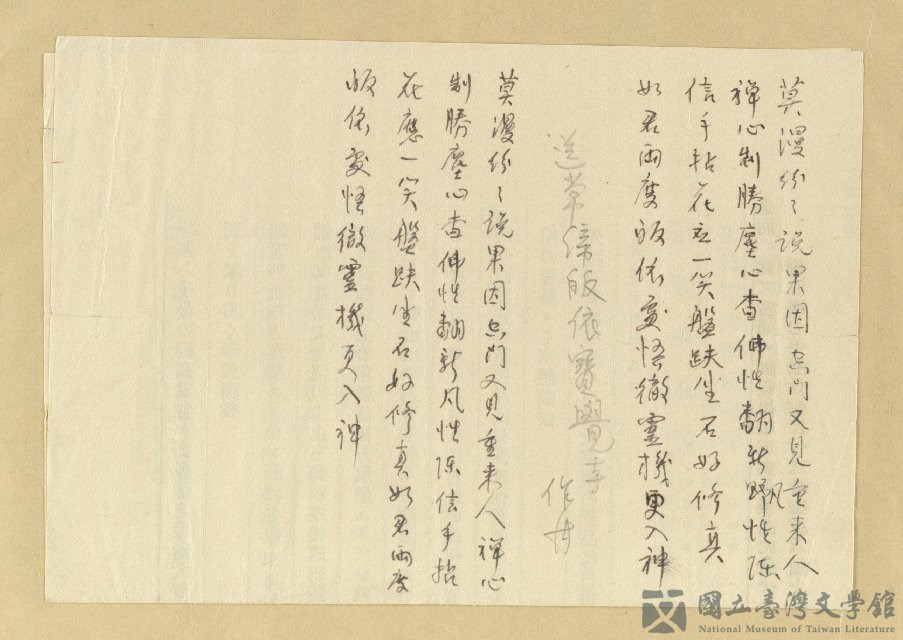 莫漫紛々說果因空門又見重来人
禅心制勝塵心杳佛性翻新野性陳
凡
信手拈花应一笑盤趺坐石好修真
如君兩度皈依處悟徹靈機更入神
送常 皈依寶覺寺
作者
莫漫紛々說果因空門又見重来人禅心
制勝塵心杳佛性翻新凡性陳信手拈
花應一笑盤趺坐石好修真如君兩度
皈依處悟徹靈機更入神
國立臺灣文學館
National Museum of Taiwan Literature